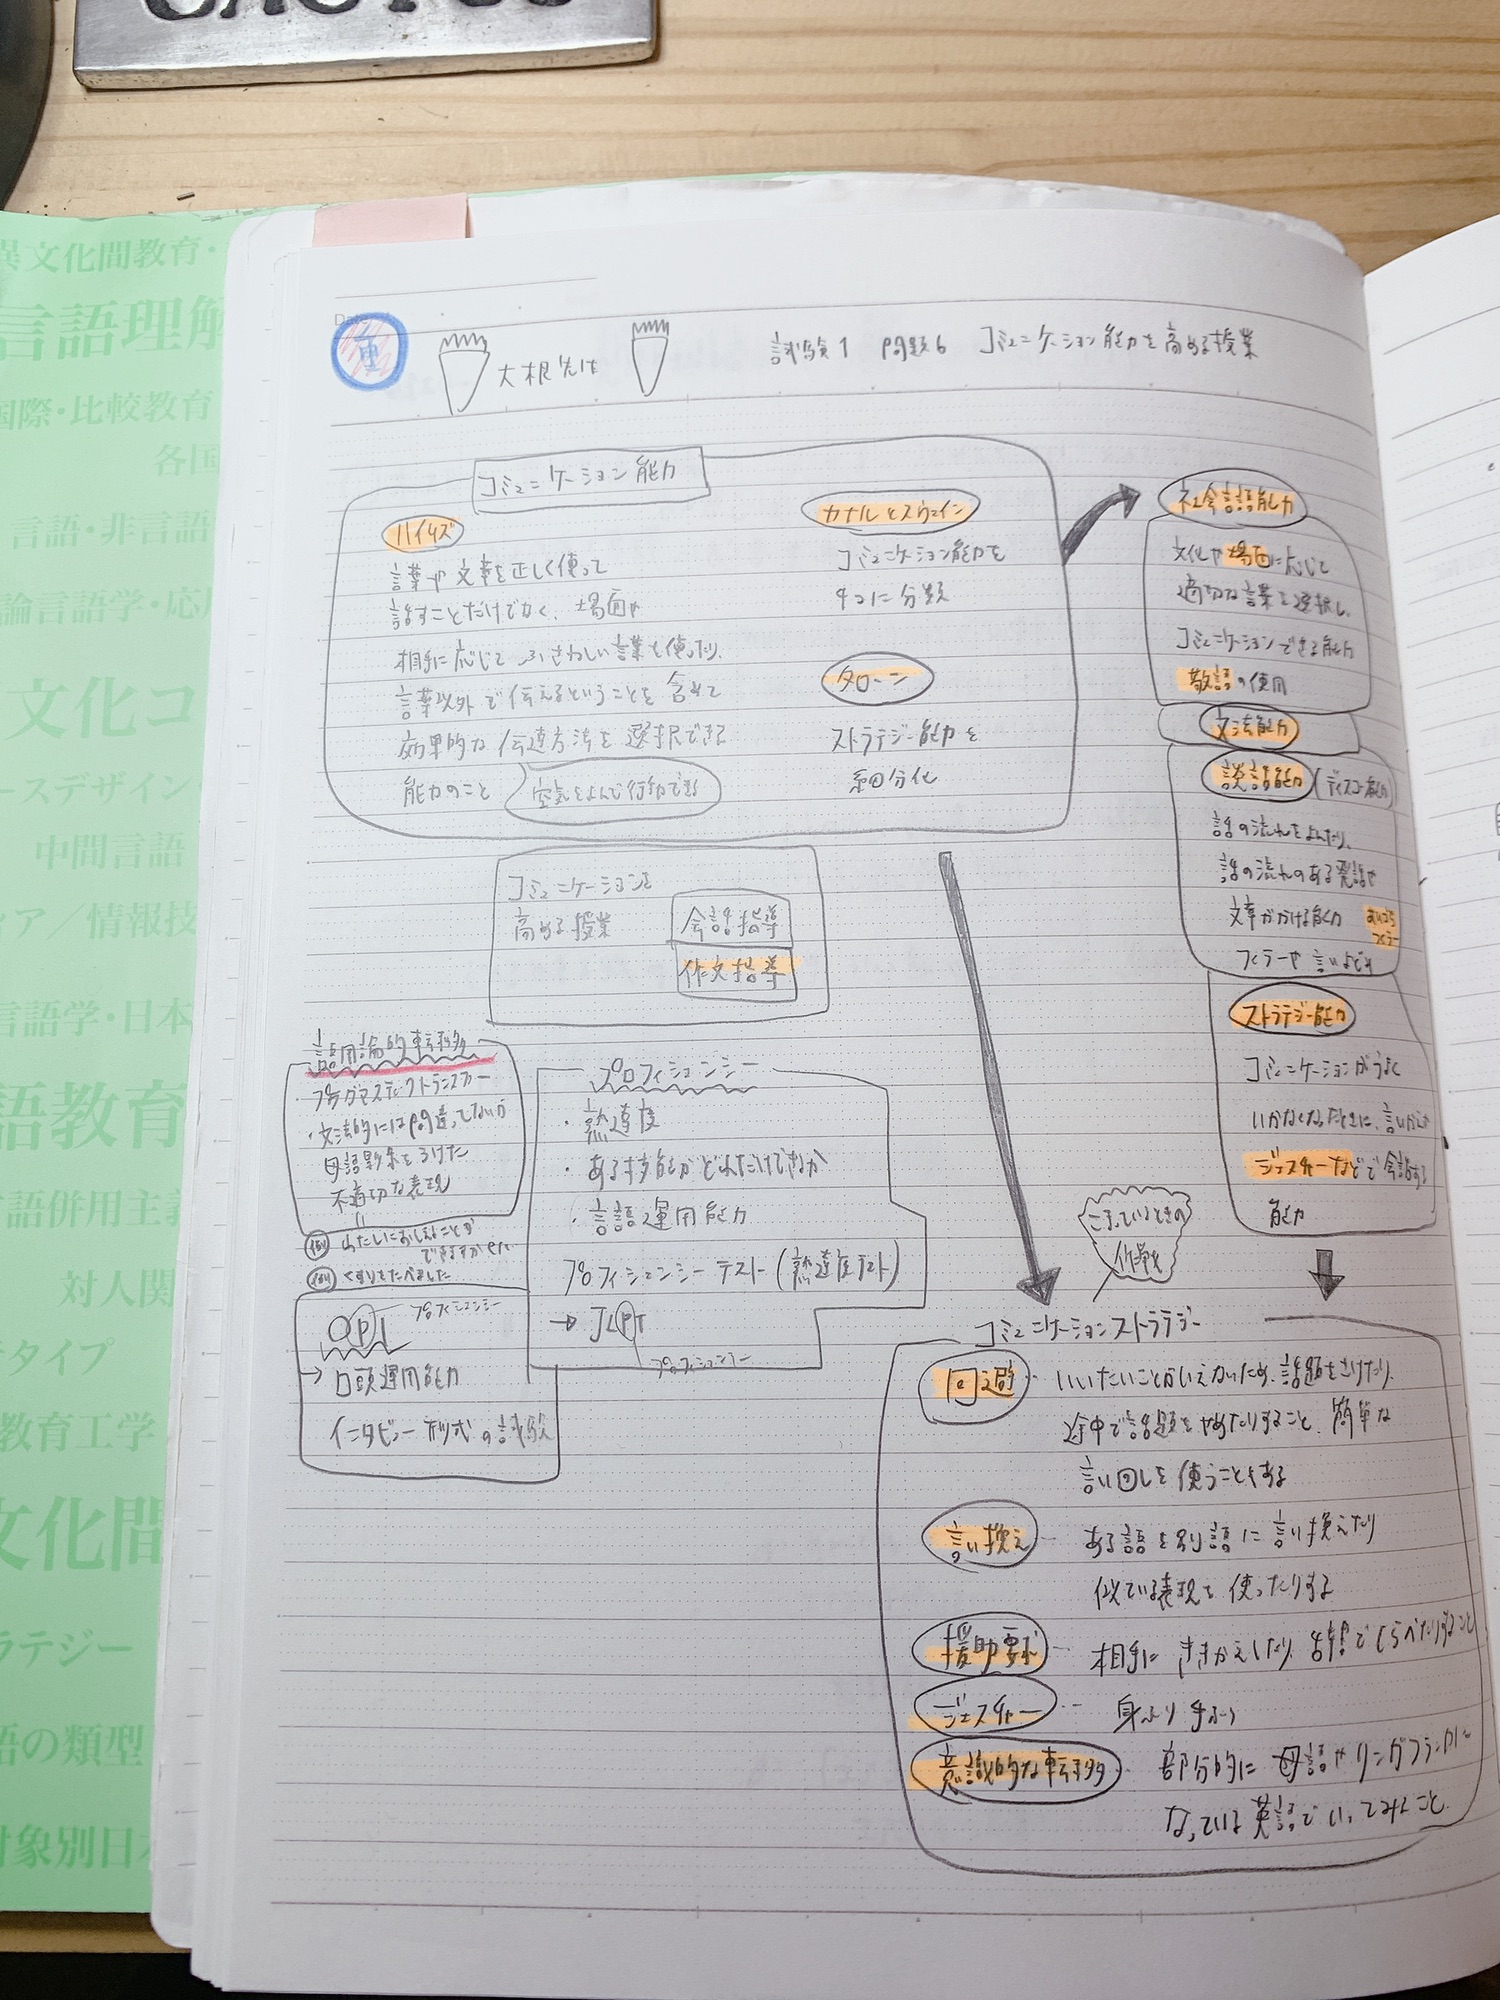 CACTUS
異文化間教育・
言語理解
国際・比較教育
各国
言語・非言語
論言語学・応用
文化コ
ースデザイン
中間言語
ィア/情報技
言語学・日本
語教育
言語併用主義
対人関
タイプ
教育工学
文化間
ラテジー
語の類型
対象別日本
Date
重
大根先生
試験1 問題6 コミュニケーション能力を高める授業
コミュニケーション能力
ハイムズ
言葉や文章を正しく使って
話すことだけでなく、場面や
相手に応じてふさわしい言葉を使ったり、
言葉以外で伝えるということを含めて
効果的な伝達方法を選択できる
能力のこと
空気をよんで行動できる
カナルとスウェイン
コミュニケーション能力を
4つに分類
タローン
ストラテジー能力を
細分化
社会言語能力
文化や場面に応じて
適切な言葉を選択し、
コミュニケーションできる能力
敬語の使用
文法能力
談話能力(ディスコース能力)
話の流れをよんだり、
話の流れのある発話や
文章がかける能力
あいづち
フィラー
フィラーや言いよどみ
ストラテジー能力
コミュニケーションがうまく
いかなくなったときに、言いかえや
ジェスチャーなどで会話する
能力
コミュニケーションを
高める授業
会話指導
作文指導
語用論的転移
・プラグマティックトランスファー
・文法的には間違ってないが
母語影響をうけた
不適切な表現
例 わたしにおしえることが
できますか etc
例 くすりをたべました
プロフィシェンシー
・熟達度
・ある技能がどれだけできるか
・言語運用能力
プロフィシェンシーテスト(熟達度テスト)
→ JLPT
プロフィシェンシー
OPI
プロフィシェンシー
→口頭運用能力
インタビュー形式の試験
こまっているときの
作戦を
コミュニケーションストラテジー
回避… いいたいことがいえないため、話題をさけたり、
途中で話題をやめたりすること、簡単な
言い回しを使うこともある
言い換え… ある語を別語に言い換えたり
似ている表現を使ったりする
援助要求… 相手にききかえしたり、辞書でしらべたりすること
ジェスチャー… 身ぶり手ぶり
意識的な転移… 部分的に母語やリンガフランカに
なっている英語でいってみること